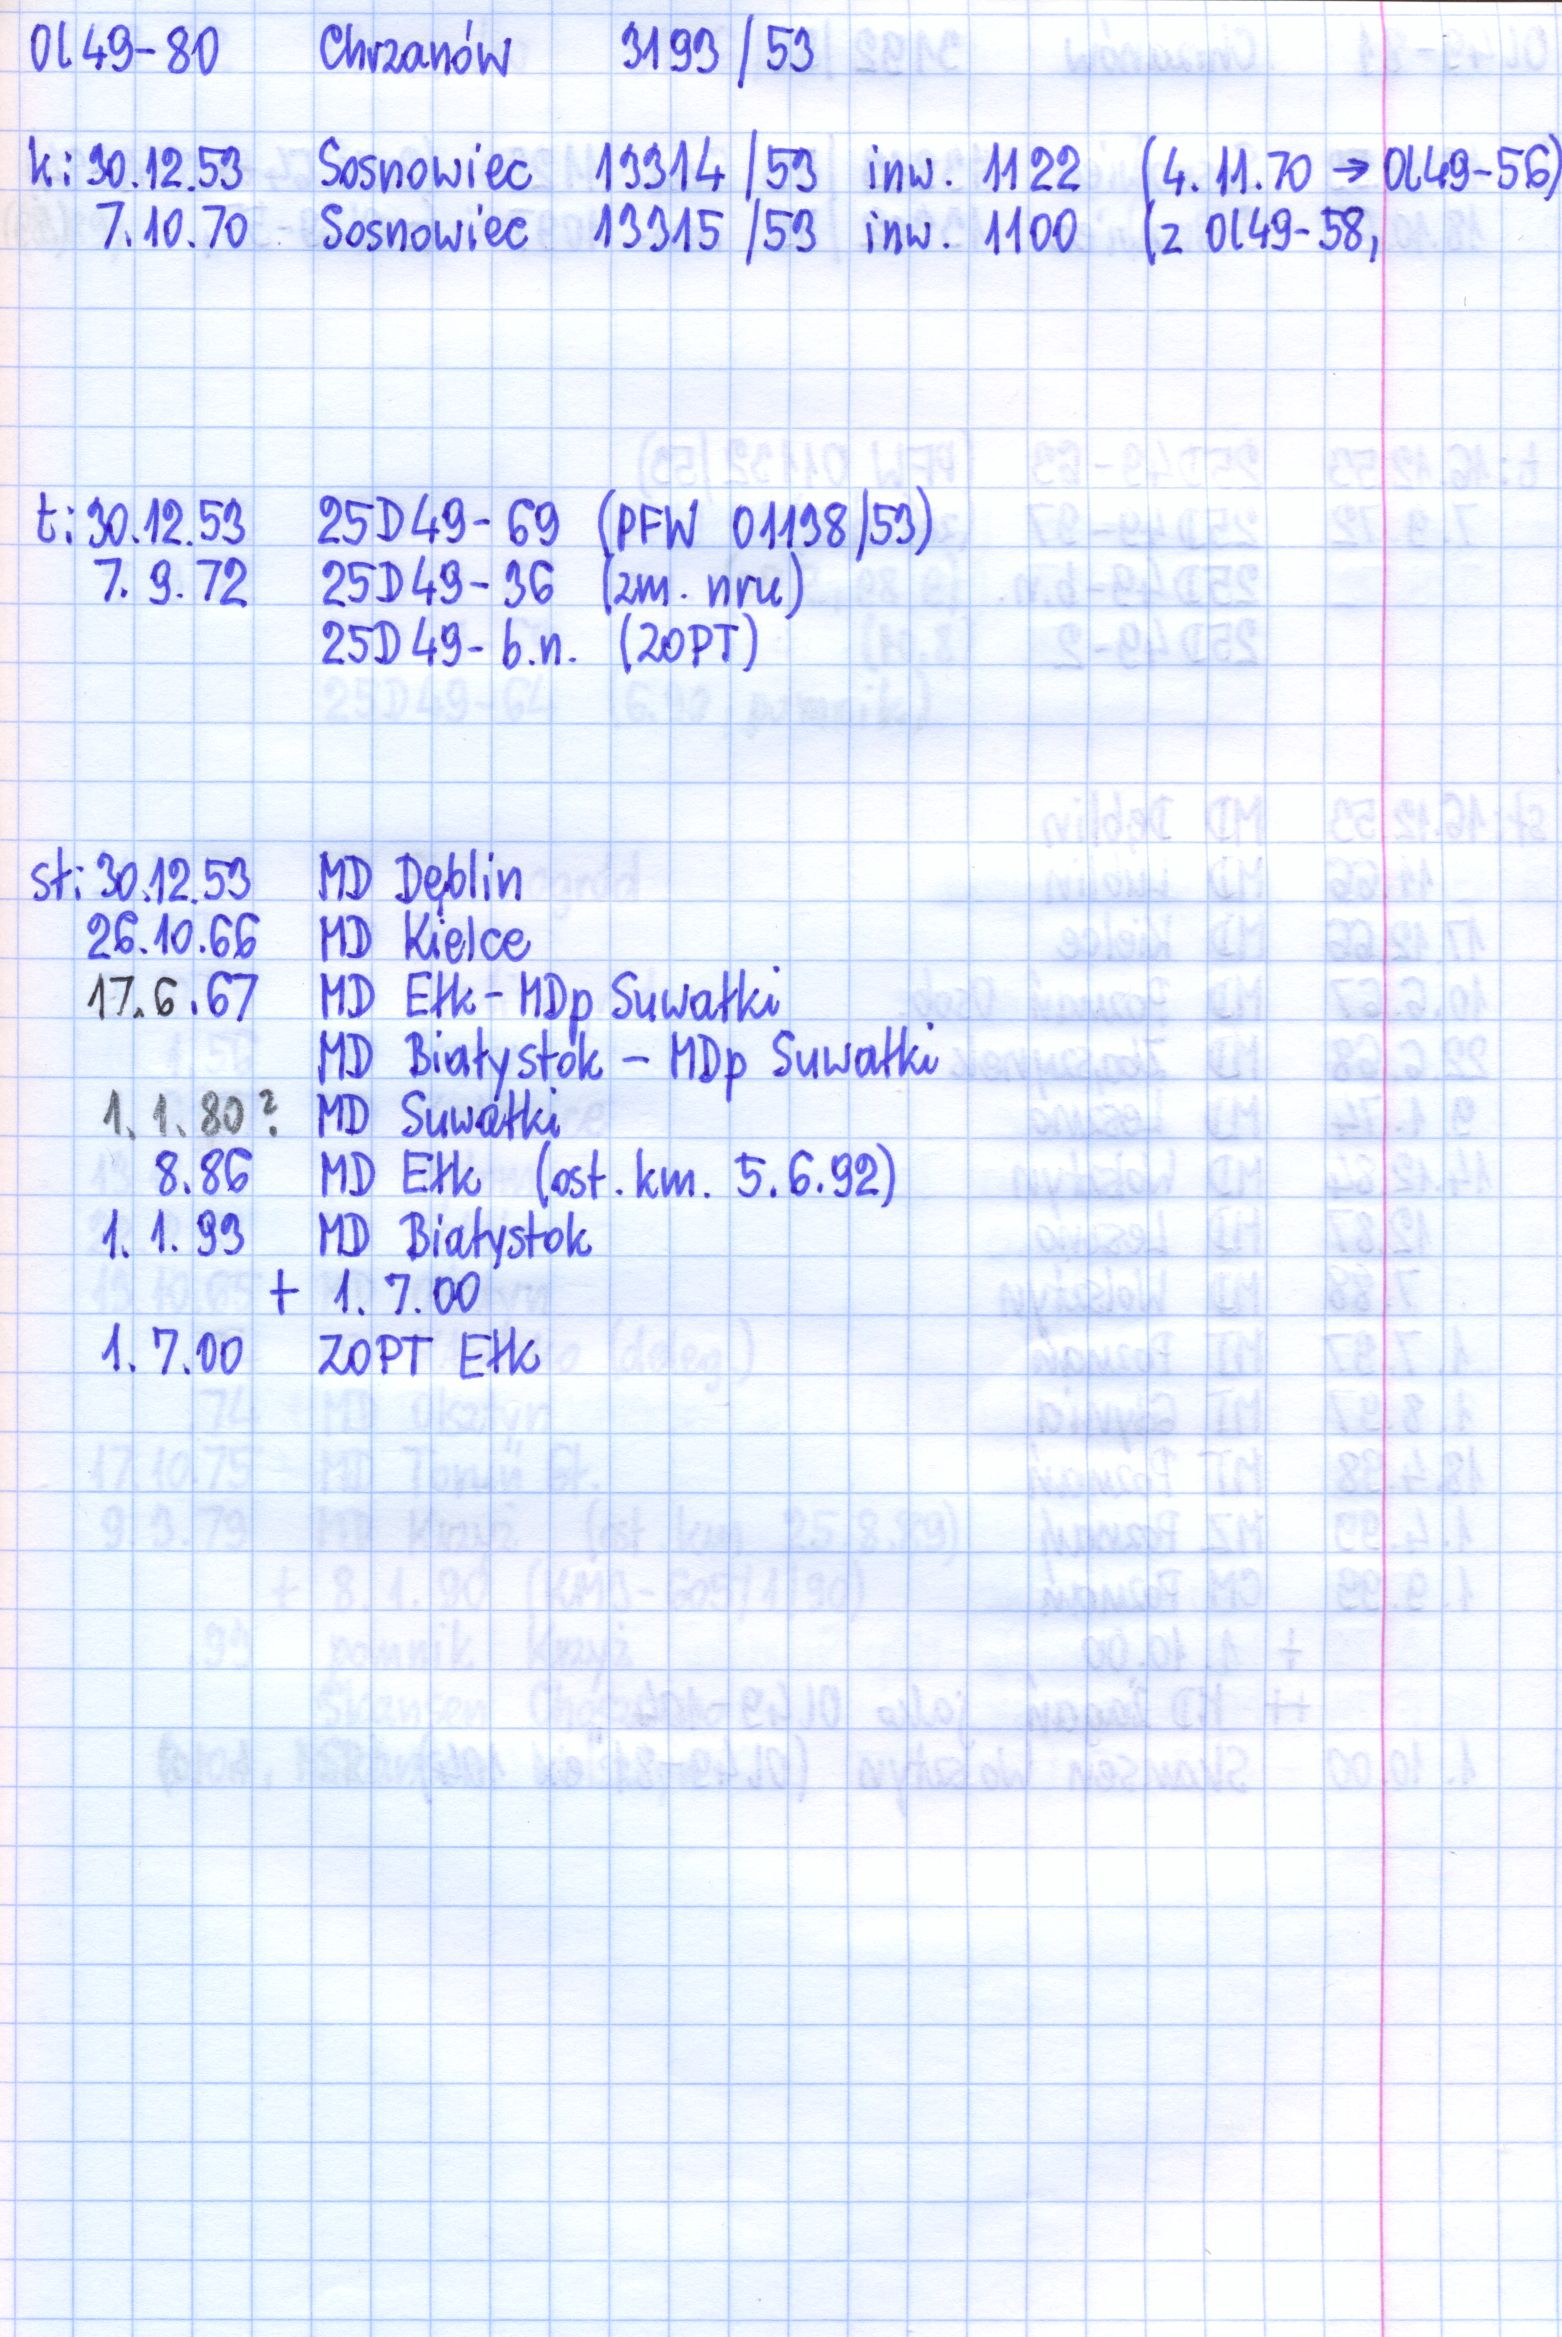 Ol49-80 Chrzanów 3193/53
k: 30.12.53 Sosnowiec 13314/53 inw. 1122 (4.11.70 → Ol49-56)
7.10.70 Sosnowiec 13315/53 inw. 1100 (z Ol49-58,
t: 30.12.53 25D49-69 (PFW 01138/53)
7.9.72 25D49-36 (zm. nru)
25D49-b.n. (ZOPT)
st: 30.12.53 MD Dęblin
26.10.66 MD Kielce
17.6.67 MD Ełk - MDp Suwałki
MD Białystok - MDp Suwałki
1.1.80? MD Suwałki
8.86 MD Ełk (ost. km. 5.6.92)
1.1.93 MD Białystok
+ 1.7.00
1.7.00 ZOPT Ełk